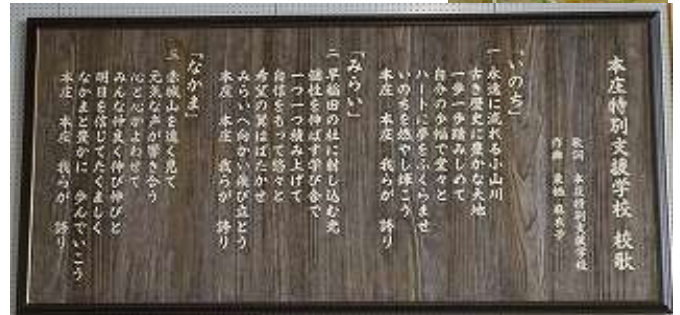 本庄特別支援学校 校歌
歌詞 本庄特別支援学校
作曲
「いのち」
一 永遠に流れる小山川
古き歴史に豊かな大地
一歩一歩踏みしめて
自分の歩幅で堂々と
ハートに夢をふくらませ
いのちを燃やし輝こう
本庄 本庄 我らが 誇り
「みらい」
二 早稲田の杜に射し込む光
個性を伸ばす学び舎で
一つ一つ積み上げて
自信をもって悠々と
希望の翼はばたかせ
みらいへ向かい飛び立とう
本庄 本庄 我らが 誇り
「なかま」
三 赤城山を遠く見て
元気な声が響き合う
心と心かよわせて
みんな仲良く伸び伸びと
明日を信じてたくましく
なかまと豊かに 歩んでいこう
本庄 本庄 我らが 誇り